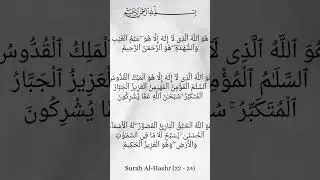 بِسْمِ ٱللَّهِ ٱلرَّحْمَٰنِ ٱلرَّحِيمِ
هُوَ ٱللَّهُ ٱلَّذِى لَآ إِلَٰهَ إِلَّا هُوَ ۖ عَٰلِمُ ٱلْغَيْبِ
وَٱلشَّهَٰدَةِ ۖ هُوَ ٱلرَّحْمَٰنُ ٱلرَّحِيمُ
هُوَ ٱللَّهُ ٱلَّذِى لَآ إِلَٰهَ إِلَّا هُوَ ٱلْمَلِكُ ٱلْقُدُّوسُ
ٱلسَّلَٰمُ ٱلْمُؤْمِنُ ٱلْمُهَيْمِنُ ٱلْعَزِيزُ ٱلْجَبَّارُ
ٱلْمُتَكَبِّرُ ۚ سُبْحَٰنَ ٱللَّهِ عَمَّا يُشْرِكُونَ
هُوَ ٱللَّهُ ٱلْخَٰلِقُ ٱلْبَارِئُ ٱلْمُصَوِّرُ ۖ لَهُ ٱلْأَسْمَآءُ
ٱلْحُسْنَىٰ ۚ يُسَبِّحُ لَهُۥ مَا فِى ٱلسَّمَٰوَٰتِ
وَٱلْأَرْضِ ۖ وَهُوَ ٱلْعَزِيزُ ٱلْحَكِيمُ
Surah Al-Hashr (22 - 24)